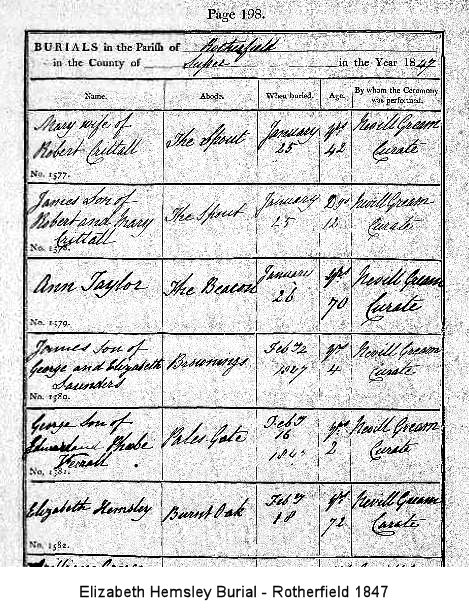 Page 198.
BURIALS in the Parish of Rotherfield
in the County of Sussex in the Year 1847
Name. Abode. When buried. Age. By whom the Ceremony was performed.
Mary wife of
Robert Cuttall The Sprout January 25 yrs 42 Nevill Gream Curate
No. 1577.
James Son of
Robert and Mary
Cuttall The Sprout January 25 Dys 12 Nevill Gream Curate
No. 1578.
Ann Taylor The Beacon January 26 yrs 70 Nevill Gream Curate
No. 1579.
James Son of
George and Elizabeth
Saunders Brownings Feby 2 1847 yrs 4 Nevill Gream Curate
No. 1580.
George Son of
Edward and Phebe
Pales Gate Feby 16 yrs 2 Nevill Gream Curate
No. 1581.
Elizabeth Hemsley Burnt Oak Feby 18 yrs 72 Nevill Gream Curate
No. 1582.
Elizabeth Hemsley Burial - Rotherfield 1847